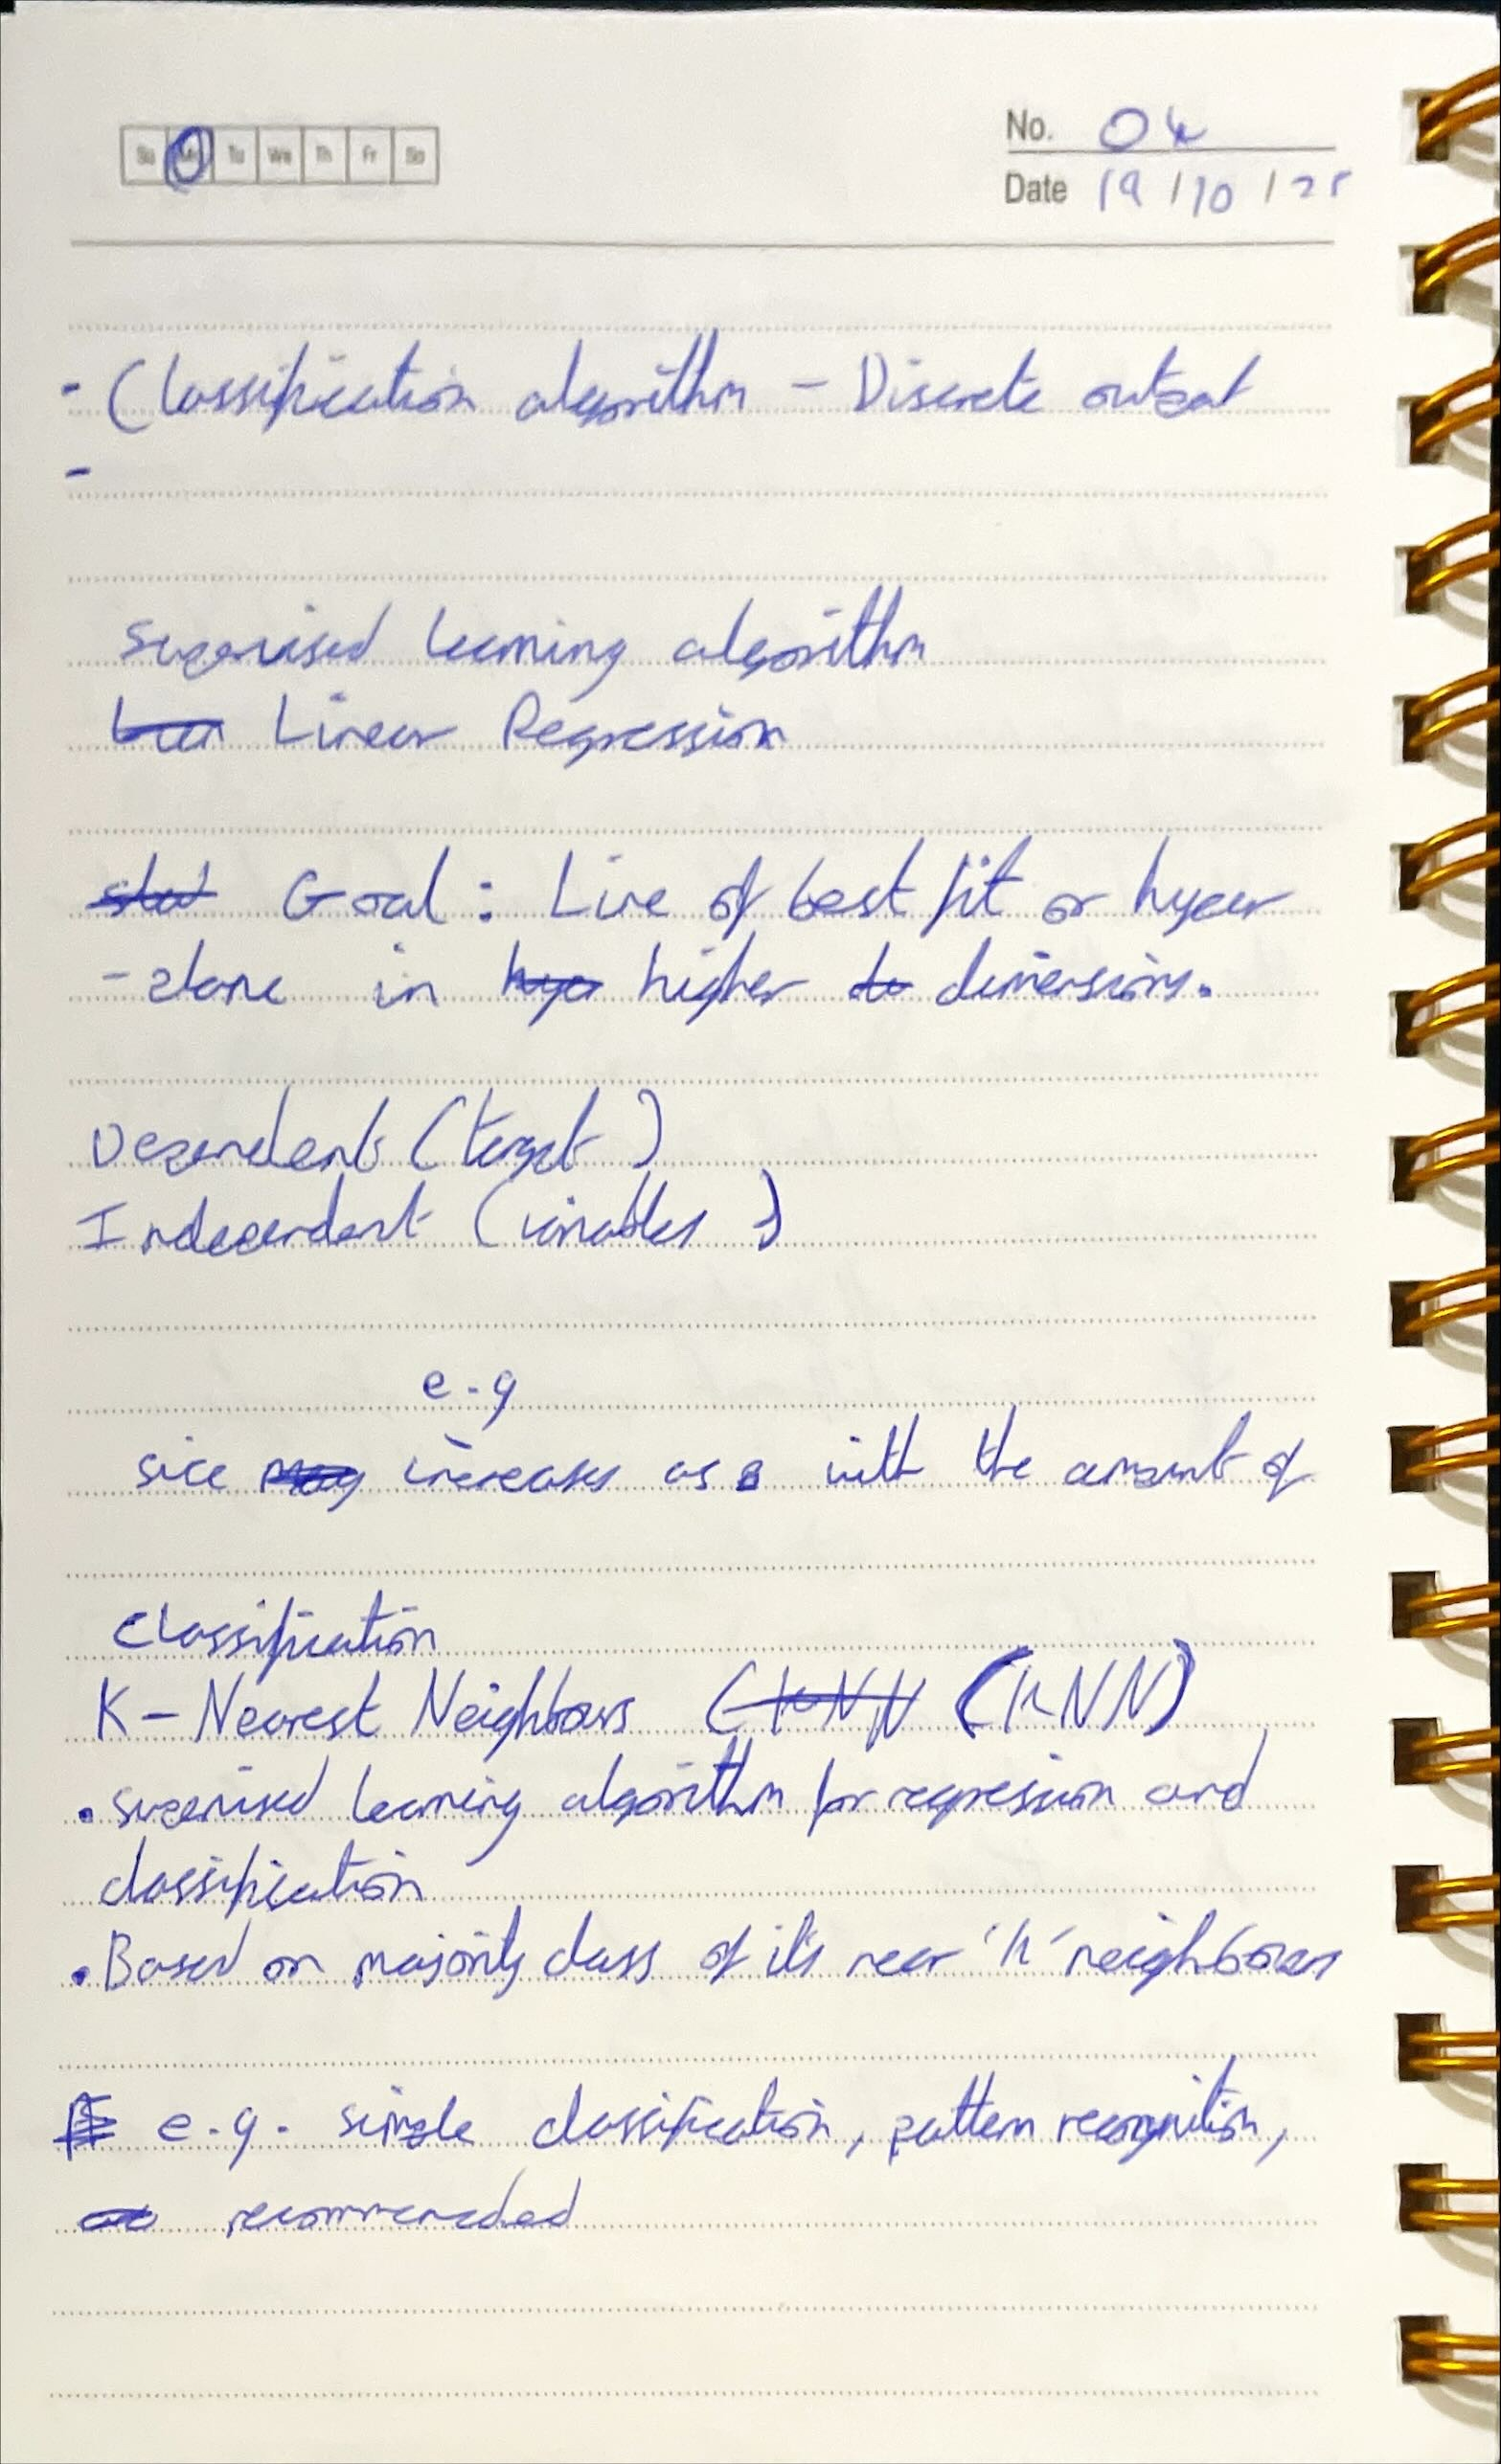 Su Mo Tu We Th Fr Sa
No. 04
Date 19/10/25
- Classification algorithm - Discrete output
-
supervised learning algorithm
Linear Regression
Goal: Line of best fit or hyper
-plane in higher dimensions.
Dependent (target)
Independent (variables)
e.g
increases as with the amount of
Classification
K-Nearest Neighbours (KNN (KNN)
• supervised learning algorithm for regression and
classification
• Based on majority class of it's near 'k' neighbours
e.g. simple classification, pattern recognition,
recommended